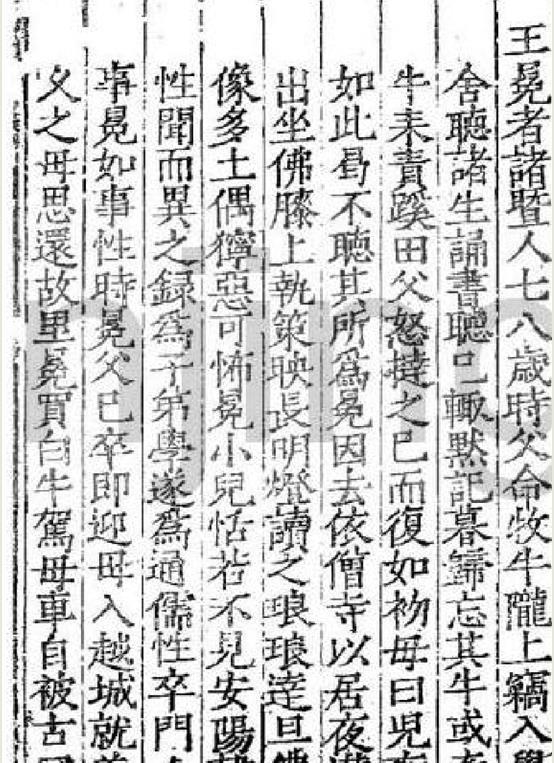 王冕者諸曁人七八歳時父命牧牛隴上竊入學
舍聽諸生誦書聽已輙黙記暮歸忘其牛或
牛来責蹊田父怒撻之已而復如初母曰兒
如此曷不聽其所爲冕因去依僧寺以居夜
出坐佛膝上執策映長明燈讀之琅琅逹旦
像多土偶獰惡可怖冕小兒恬若不見安陽
性聞而異之録爲子弟學遂爲通儒性卒門
事冕如事性時冕父已卒即迎母入越城就
父之母思還故里冕買白牛駕母車自被古